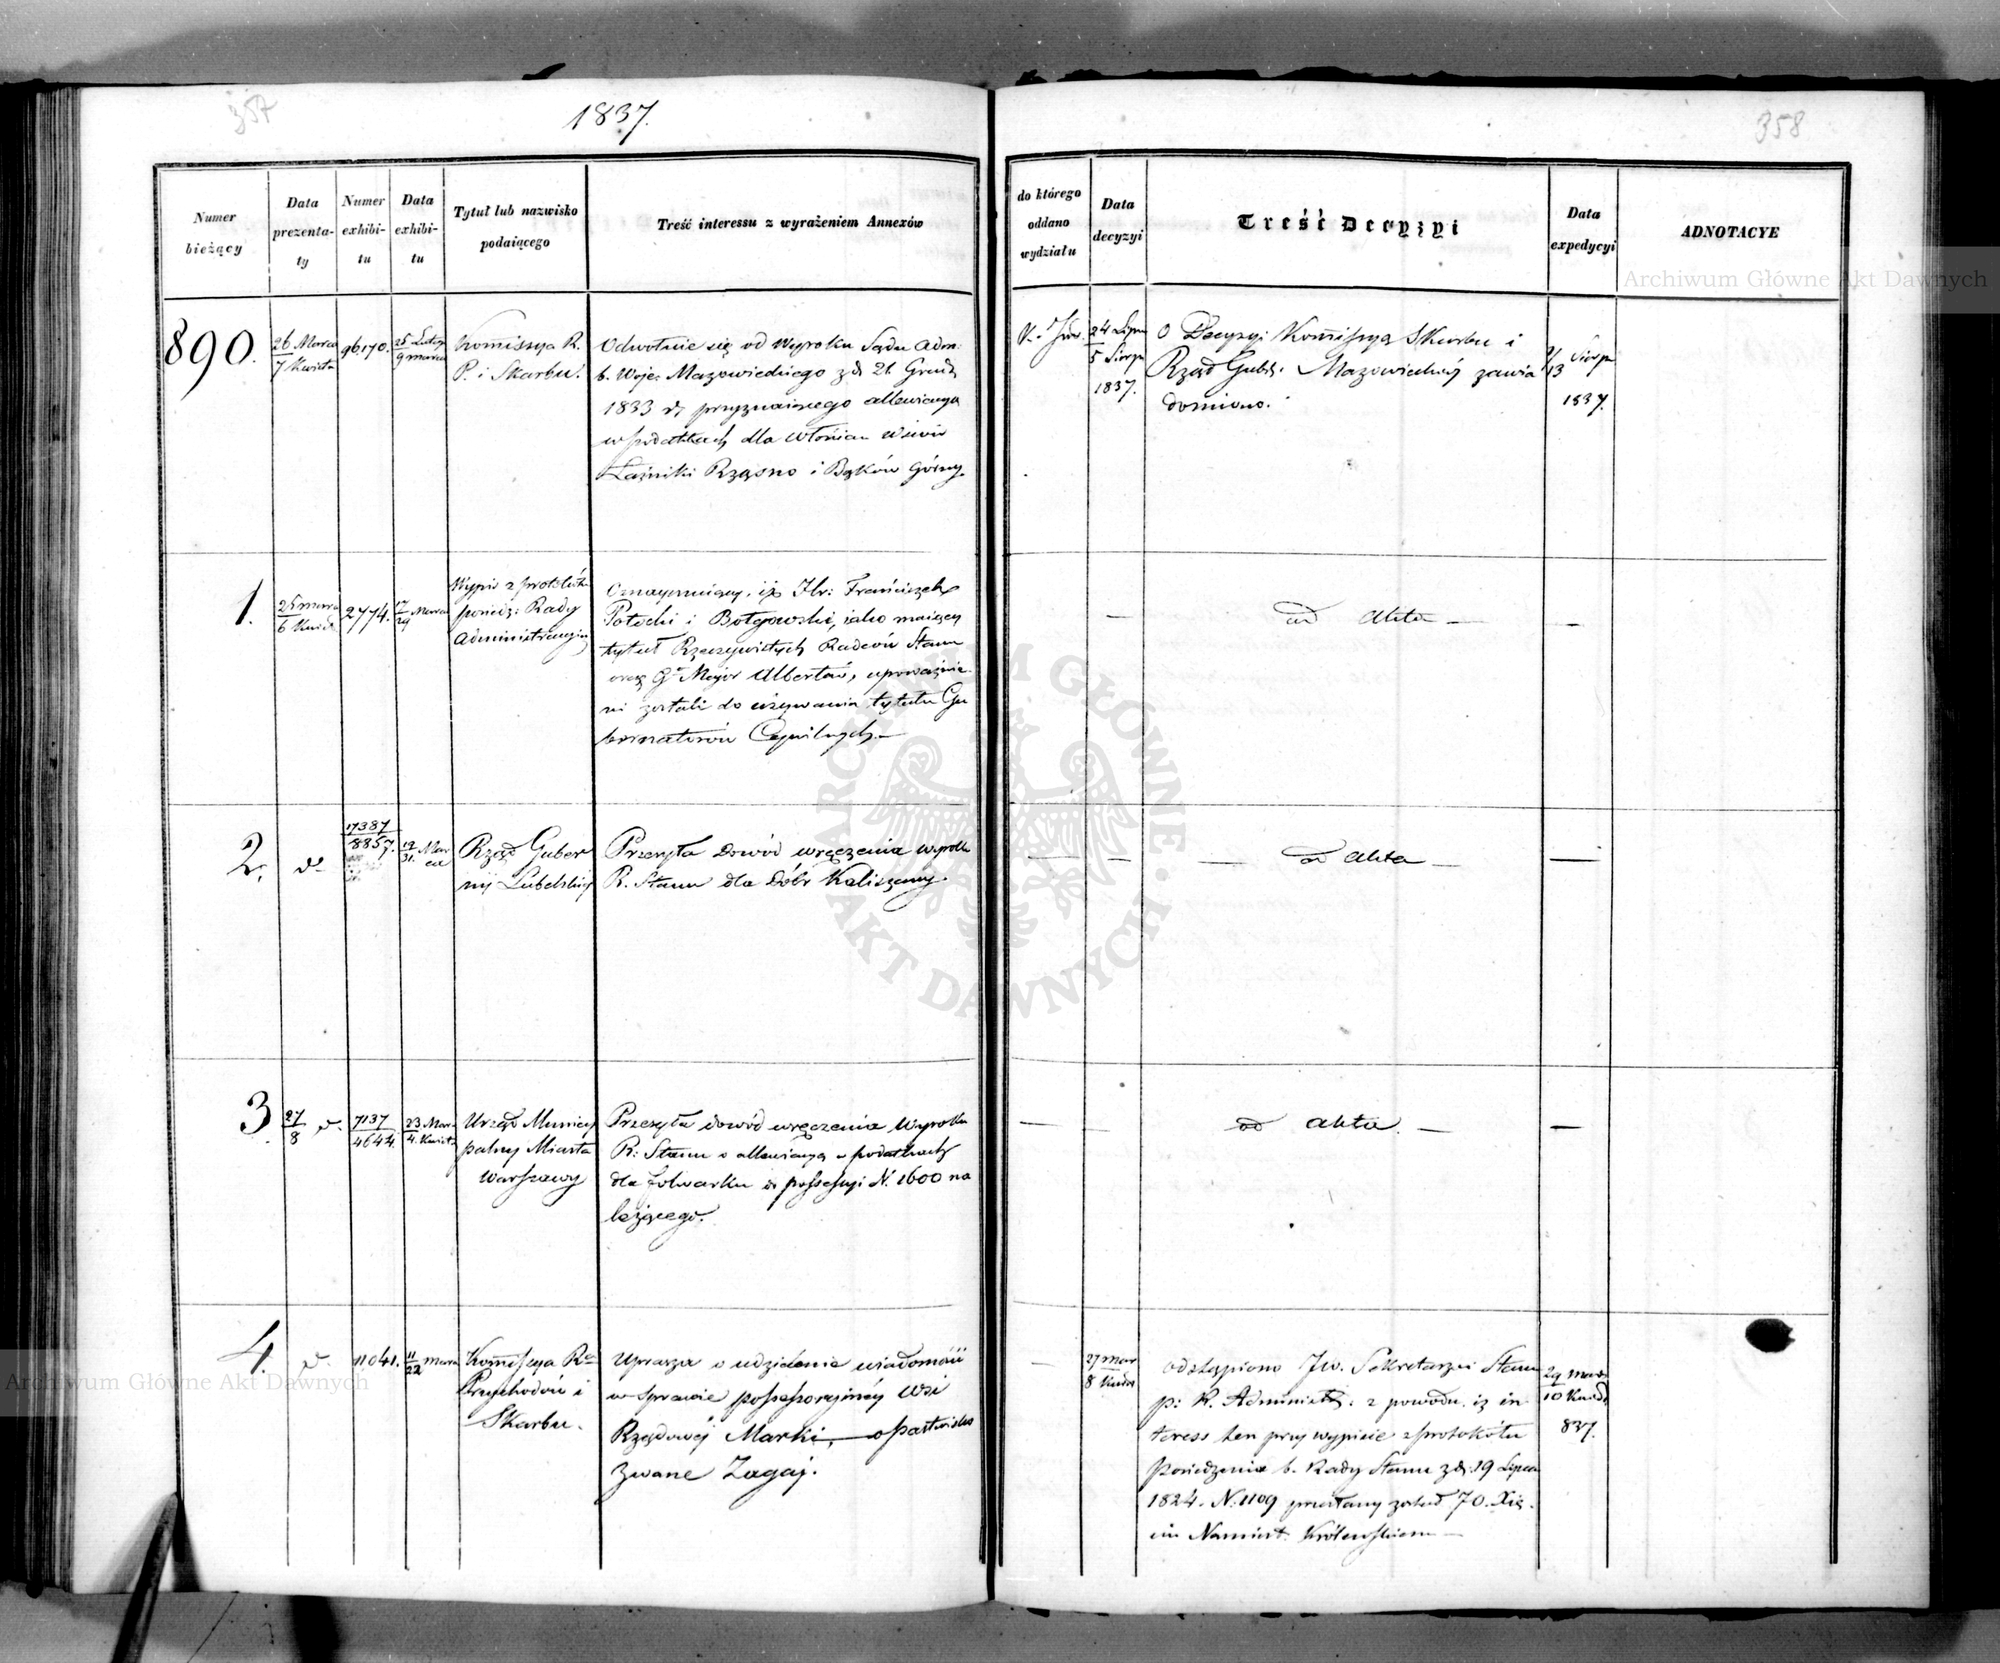 357
1837.
Numer bieżący
Data prezenta-ty
Numer exhibi-tu
Data exhibi-tu
Tytuł lub nazwisko podaiącego
Treść interessu z wyrażeniem Annexów
890.
26 Marca
7 Kwiet
96170.
25 Luteg
9 marca
Kommissya R.
P. i Skarbu.
Odwołanie się od Wyroku Sądu Adm:
b. Woje: Mazowieckiego z d. 21 Grud.
1833 r. przyznaiącego allewiacyą
w podatkach dla Włościan wsiów
Łaźniki Rząsno i Bąków Górny.
1.
25 marca
6 Kwiet
2774.
17/29 Marca
Wypis z protokółu
posiedz: Rady
Administracyjn
Oznaymuiący, iż Hr: Franciszek
Potocki i Bołgowski, iako maiący
tytuł Rzeczywistych Radców Stanu
oraz Gł Major Albertów, upoważnie-
ni zostali do używania tytułu Gu
bernatorów Cywilnych.—
2.
d°
17387
8857.
19/31. Mar
ca
Rząd Guber
nij Lubelskiéj
Przesyła dowód wręczenia wyroku
R. Stanu dla Dóbr Kaliszany.
3
27/8 d°.
7137
4644.
23 Mar.
4. Kwiet.
Urząd Municy
palny Miasta
Warszawy
Przesyła dowód wręczenia Wyroku
R: Stanu o allewiacyą w podatkach
dla folwarku do possessyi N. 1600 na
leżącego.
4.
d°.
11041.
11/22 Marca
Kommissya R
Przychodów i
Skarbu.
Uprasza o udzielenie wiadomości
w sprawie possessoryjnéy wsi
Rządowéj Marki, o pastwisko
zwane Zagaj.
358
do którego oddano wydziału
Data decyzyi
Treść Decyzyi
Data expedycyi
ADNOTACYE
24 Lipca
5 Sierp
1837.
O Decyzyi Kommissya Skarbu i
Rząd Gub: Mazowieckiéj zawia
domiono.
1/13 Sierpn
1837.
— ad Akta — —
— — — ad Akta — —
— — ad Akta. — —
—
27 Mar
8 Kwiet
Odstąpiono Jw. Sekretarzowi Stanu
p: R. Administr: z powodu, iż in-
teress ten przy wypisie z protokółu
Posiedzenia b. Rady Stanu z d. 19 Lipca
1824. N. 1109 przesłany został J.O. Xię-
ciu Namiest. Królewskiemu —
29 Marc
10 Kwiet
837.
Archiwum Główne Akt Dawnych
Archiwum Główne Akt Dawnych
ARCHIWUM GŁÓWNE AKT DAWNYCH